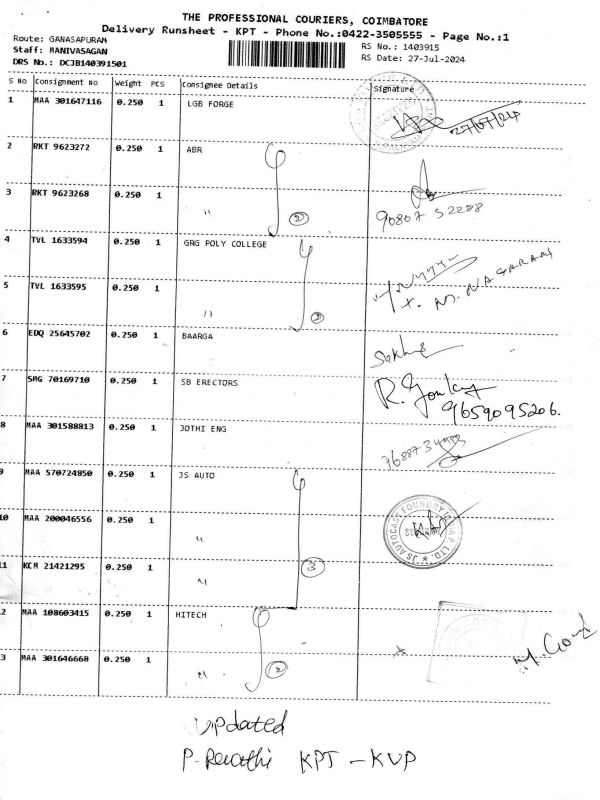 THE PROFESSIONAL COURIERS, COIMBATORE
Delivery Runsheet - KPT - Phone No.:0422-3505555 - Page No.:1
Route: GANASAPURAM
Staff: MANIVASAGAN
DRS No.: DCJB140391501
RS No.: 1403915
RS Date: 27-Jul-2024
S No Consignment No Weight PCS Consignee Details Signature
1 MAA 301647116 0.250 1 LGB FORGE
27/07/24
2 RKT 9623272 0.250 1 ABR
3 RKT 9623268 0.250 1 " 2
90807 52288
4 TVL 1633594 0.250 1 GRG POLY COLLEGE
5 TVL 1633595 0.250 1 " 2
6 EDQ 25645702 0.250 1 BAARGA
7 SMG 70169710 0.250 1 SB ERECTORS
9659095206.
8 MAA 301588813 0.250 1 JOTHI ENG
9 MAA 570724850 0.250 1 JS AUTO
10 MAA 200046556 0.250 1 "
JS AUTOCAST FOUNDRY
11 KCM 21421295 0.250 1 " 3
12 MAA 108603415 0.250 1 HITECH
13 MAA 301646668 0.250 1 " 2
updated
P. Revathi KPT - KVP